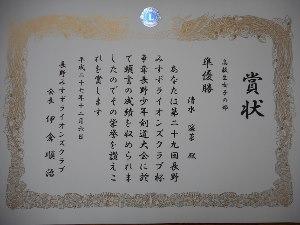 賞状
高校生女子の部
準優勝
清水 殿
あなたは第二十九回長野
みすずライオンズクラブ杯
争奪長野少年剣道大会に於
て頭書の成績を収められま
したのでその栄誉を讃えこ
れを賞します
平成二十七年十二月六日
長野みすずライオンズクラブ
会長 伊倉順治
L